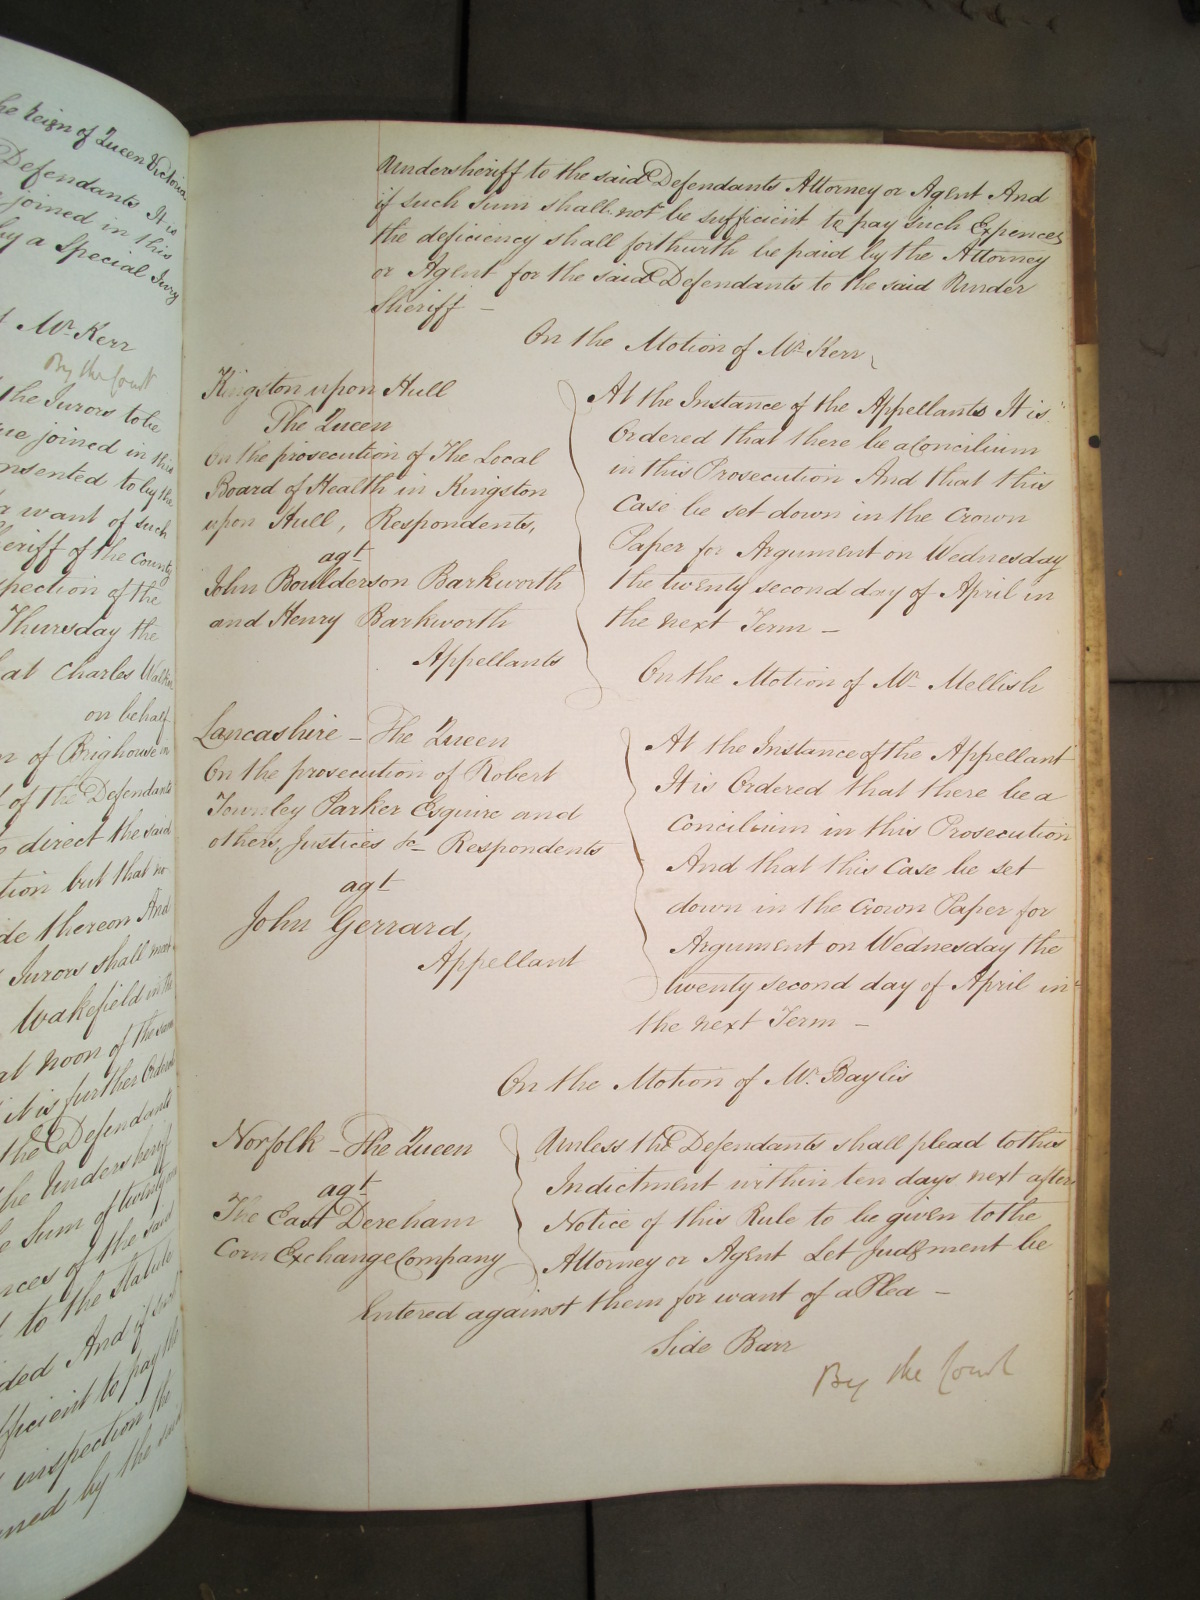 he Reign of Queen Victoria
Defendants It is
joined in this
by a Special Jury
Mr Kerr
By the Court
the Jurors to be
ue joined in this
nsented to by the
a want of such
heriff of the County
spection of the
Thursday the
at Charles
on behalf
n of Brighouse in
of the Defendants
direct the said
tion but that no
de thereon And
Jurors shall
Wakefield in the
at noon of the same
it is further Ordered
the Defendants
he Undersheriff
e Sum of
nces of the said
to the Statute
ded And if such
fficient to pay the
inspection the
by the said
Undersheriff to the said Defendants Attorney or Agent And
if such Sum shall not be sufficient to pay such Expences
the deficiency shall forthwith be paid by the Attorney
or Agent for the said Defendants to the said Under
Sheriff –
On the Motion of Mr Kerr
Kingston upon Hull
The Queen
On the prosecution of The Local
Board of Health in Kingston
upon Hull, Respondents,
agt
John Boulderson Barkworth
and Henry Barkworth
Appellants
At the Instance of the Appellants It is
Ordered that there be a Concilium
in this Prosecution And that this
Case be set down in the Crown
Paper for Argument on Wednesday
the twenty second day of April in
the next Term –
On the Motion of Mr Mellish
Lancashire – The Queen
On the prosecution of Robert
Townley Parker Esquire and
others, Justices &c Respondents
agt
John Gerrard,
Appellant
At the Instance of the Appellant
It is Ordered that there be a
Concilium in this Prosecution
And that this Case be set
down in the Crown Paper for
Argument on Wednesday the
twenty second day of April in
the next Term –
On the Motion of Mr. Baylis
Norfolk – The Queen
agt
The East Dereham
Corn Exchange Company
Unless the Defendants shall plead to this
Indictment within ten days next after
Notice of this Rule to be given to the
Attorney or Agent Let Judgment be
Entered against them for want of a Plea –
Side Barr
By the Court